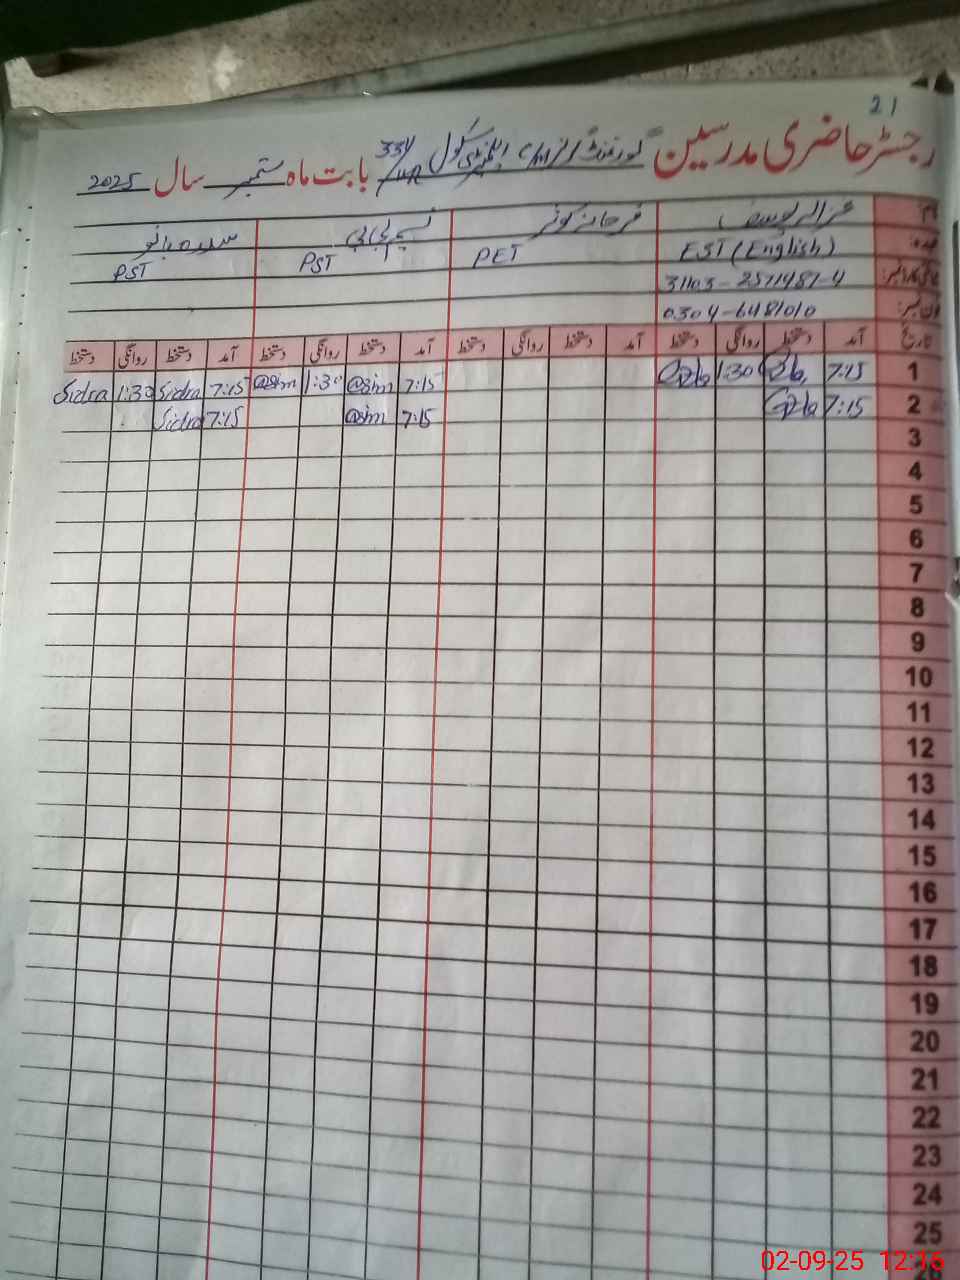 21
رجسٹر حاضری مدرسین گورنمنٹ گرلز ایلیمنٹری سکول 334 بابت ماہ ستمبر سال 2025
نام غزالہ یوسف فرحانہ کوثر بی بی سدرہ بانو
عہدہ EST (English) PET PST PST
31103-2571487-4
0304-6481010
تاریخ آمد دستخط روانگی دستخط آمد دستخط روانگی دستخط آمد دستخط روانگی دستخط
1 7:15 1:30 7:15 1:30 7:15 Sidra 1:30 Sidra
2 7:15 7:15 7:15 Sidra
3
4
5
6
7
8
9
10
11
12
13
14
15
16
17
18
19
20
21
22
23
24
25
02-09-25 12:16